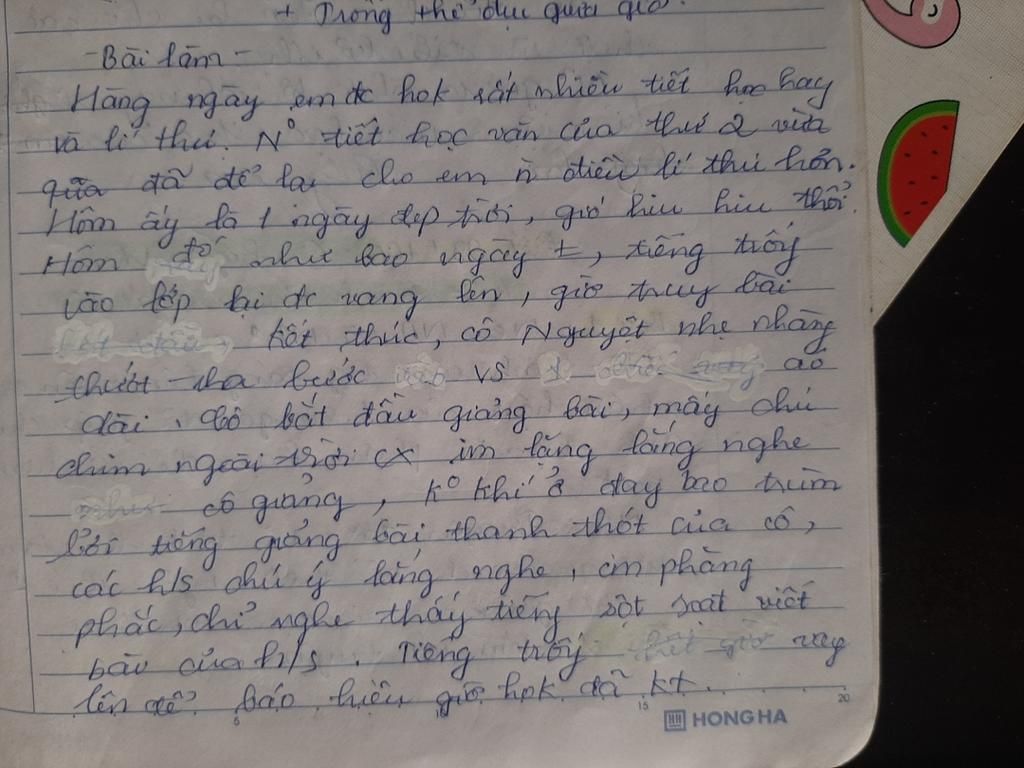 + Trống thể dục giữa giờ.
- Bài làm -
Hàng ngày em đc hok rất nhiều tiết học hay
và lí thú. N° tiết học văn của thứ 2 vừa
qua đã để lại cho em n điều lí thú hơn.
Hôm ấy là 1 ngày đẹp trời, gió hiu hiu thổi.
Hôm đó như bao ngày ≠, tiếng trống
vào lớp lại đc vang lên, giờ truy bài
kết thúc, cô Nguyệt nhẹ nhàng
thướt tha bước vào vs áo
dài. Cô bắt đầu giảng bài, mấy chú
chim ngoài trời cx im lặng lắng nghe
cô giảng, k° khí ở đay bao trùm
bởi tiếng giảng bài thanh thót của cô,
các h/s chú ý lắng nghe, im phăng
phắc, chỉ nghe thấy tiếng sột soạt viết
bài của h/s. Tiếng trống vang
lên để báo hiệu giờ hok đã kt.
15 20
HH HONG HA